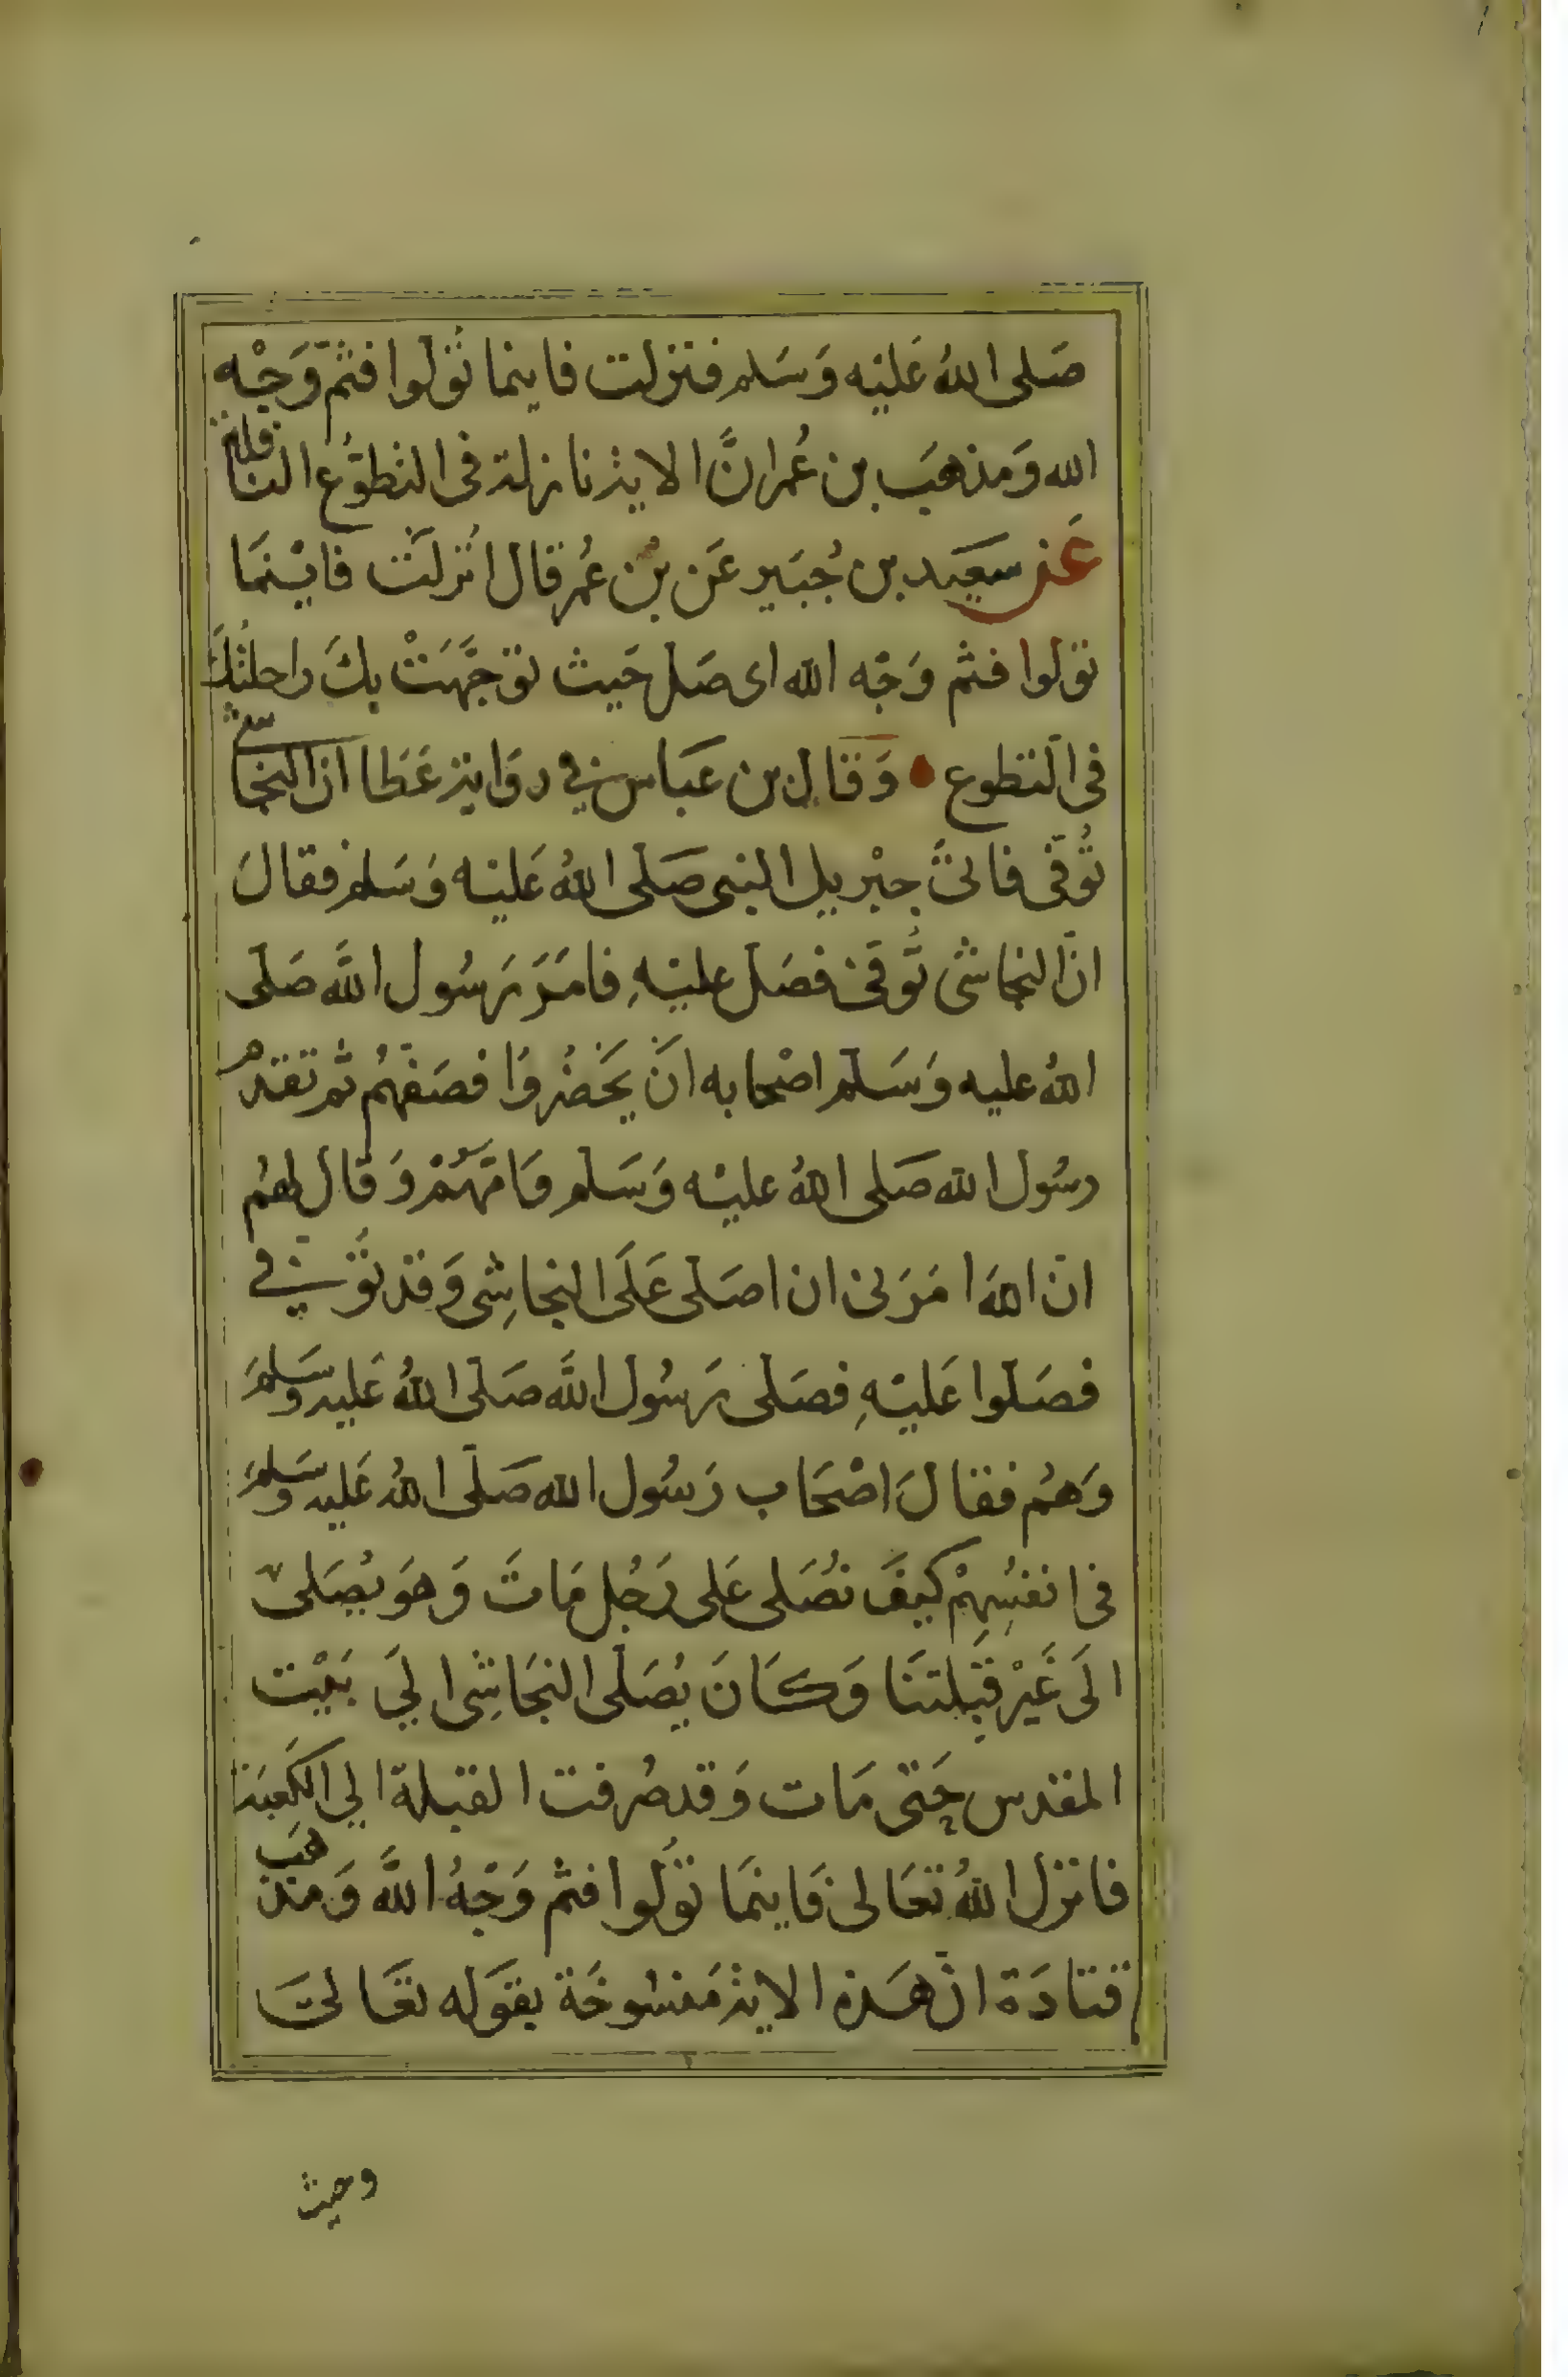 صَلى اللهُ عَليْه وَسَلم فنزلت فاينما تُوَلوا فثمّ وَجْه
الله وَمذهَب بن عُمر انَّ الاية نازلة فى التطوُّع النافلة
عَن سَعيد بن جُبَير عَن بْن عُمر قال انُزلَتْ فايْنمَا
تولوا فثم وَجْه الله اى صَل حَيث توَجَّهَتْ بكَ راحلتُكَ
فى التطوع وَقال بن عَباس في روَاية عَطا انّ النجاشى
تُوُفّى فاتىَ جبْريل النبى صَلى اللهُ عَليْه وَسَلم فقالَ
انّ النجاشى تُوفى فصَل عليْهِ فامَرَ رَسُول اللَّه صَلى
اللهُ عليه وَسَلم اصْحابه انَ يَحَضُروُا فصَفهُم ثم تقدم
رسُول الله صَلى اللهُ عليْه وَسَلم وَامَّهُمْ وَقال لهُم
انّ اللهَ امَرَنى ان اصَلى عَلَى النجاشِى وَقد تُوُفي
فصَلوا عَليْهِ فصَلى رَسُول اللَّه صَلى اللهُ عَليه وَسَلمَ
وَهُم فقالَ اصْحَاب رَسُول الله صَلى اللهُ عَليه وَسَلمَ
فى انفسُهِمْ كيفَ نُصَلى عَلى رَجُل مَاتَ وَهوَ يُصَلى
الَى غَيْر قبَلتنَا وَكَانَ يُصَلى النجَاشِى الىَ بَيْت
المقدس حَتى مَات وَقد صُرفت القبلة الى الكَعبَة
فانزل اللهُ تعَالى فَاينمَا توَلُوا فثم وَجْهُ اللَّه وَمذهَب
قتادَة انّ هَذه الاية مَنسُوخَة بقوَله تعَالىَ
وحيث